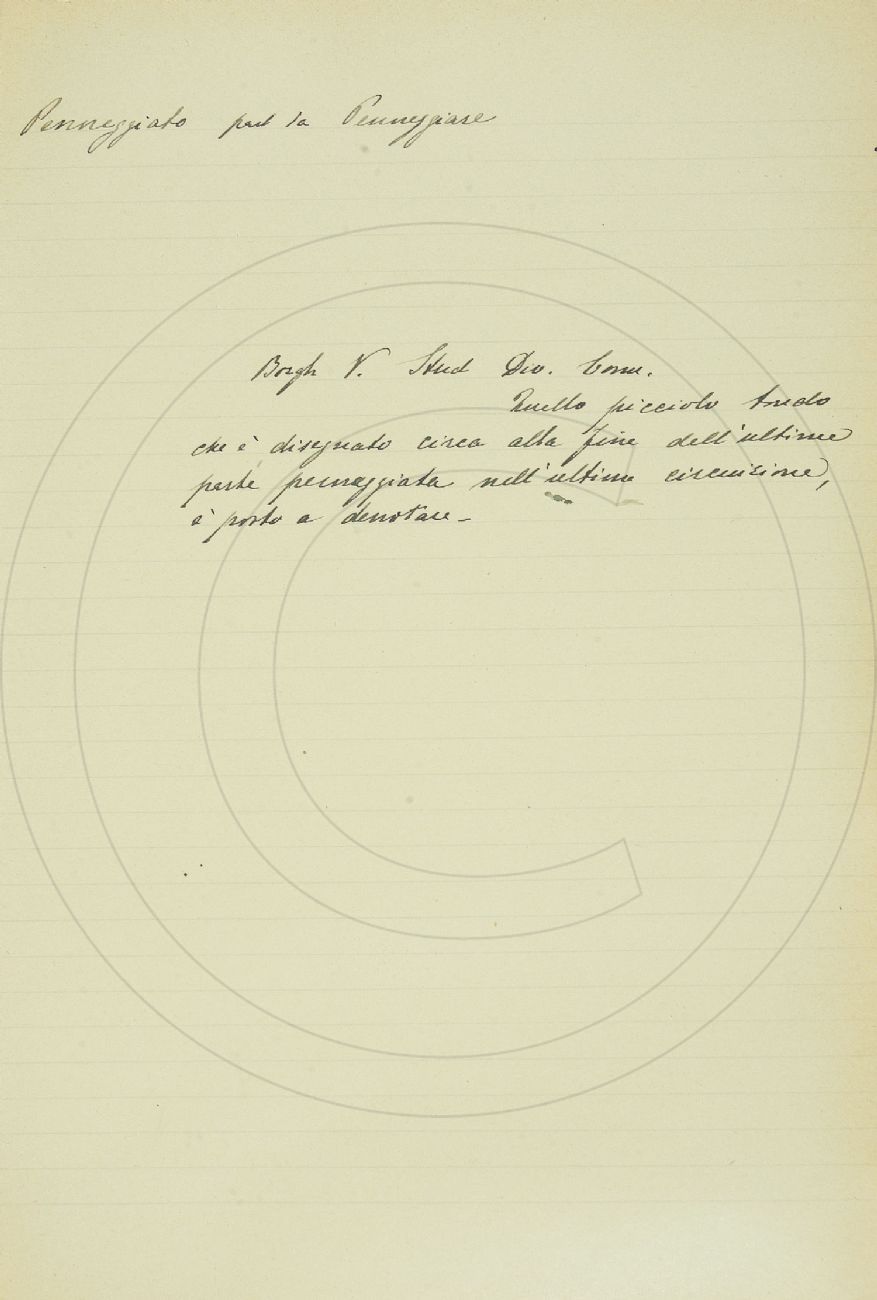 Penneggiato part da Penneggiare
Borgh V. Stud Div. Com.
Quello picciolo tondo
che è disegnato circa alla fine dell'ultima
parte penneggiata nell'ultima circuizione,
è posto a denotare -